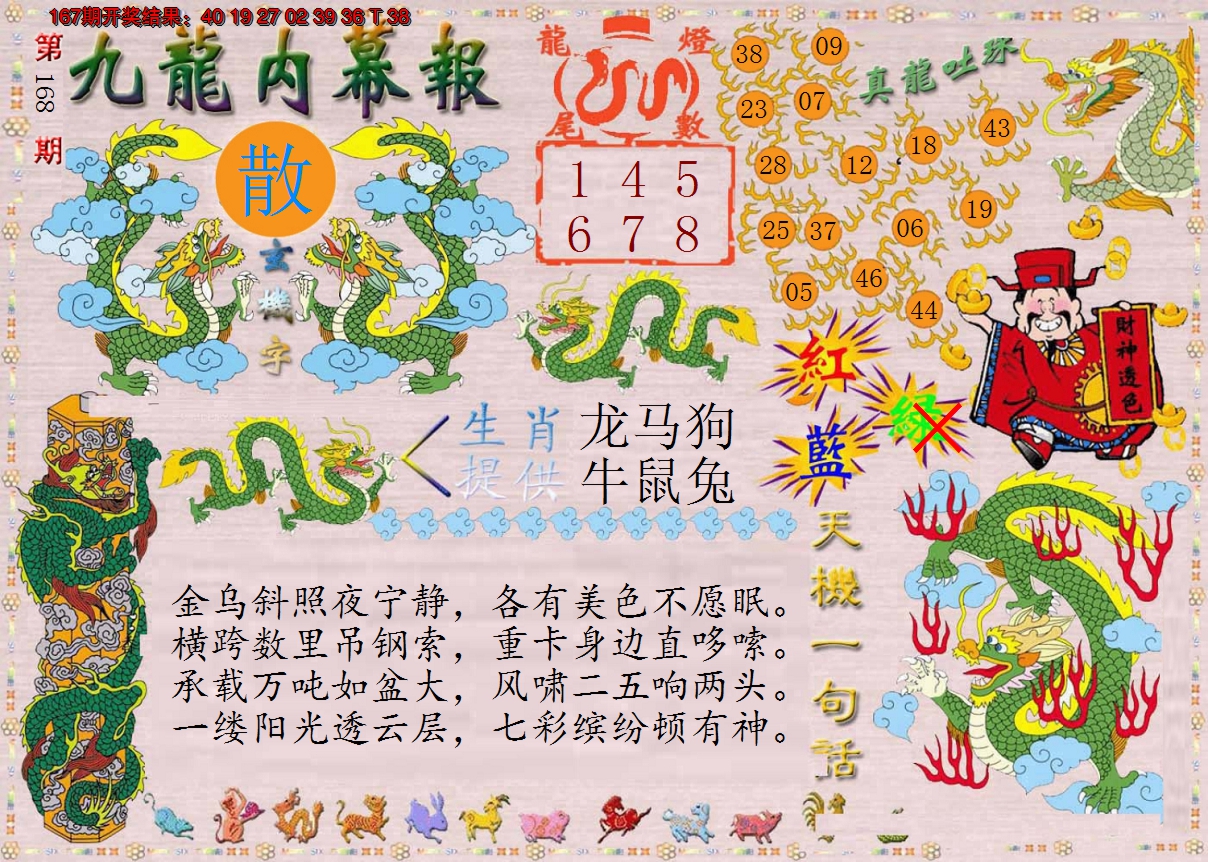 167期开奖结果：40 19 27 02 39 36 T 38
第168期
九龍内幕報
散
玄機字
龍燈
尾數
1 4 5
6 7 8
真龍吐珠
38
09
23
07
43
18
28
12
19
25
37
06
46
05
44
紅
綠
藍
財神透色
生肖提供
龙马狗
牛鼠兔
天機一句話
金乌斜照夜宁静，各有美色不愿眠。
横跨数里吊钢索，重卡身边直哆嗦。
承载万吨如盆大，风啸二五响两头。
一缕阳光透云层，七彩缤纷顿有神。